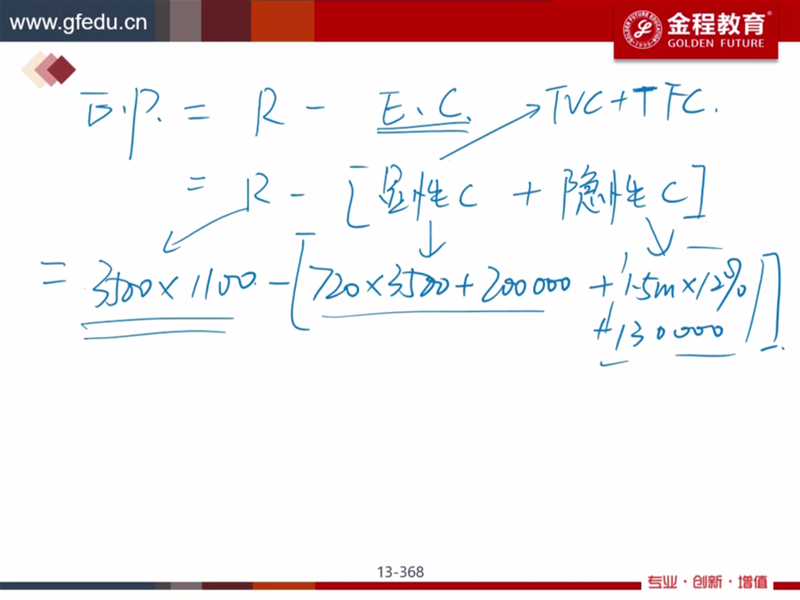 www.gfedu.cn
金程教育
GOLDEN FUTURE
E.P. = R - E.C. TVC+TFC.
= R - [显性C + 隐性C]
= 3500×1100 - [720×3500+200000 + 1.5m×12%
+130000]
13-368
专业·创新·增值